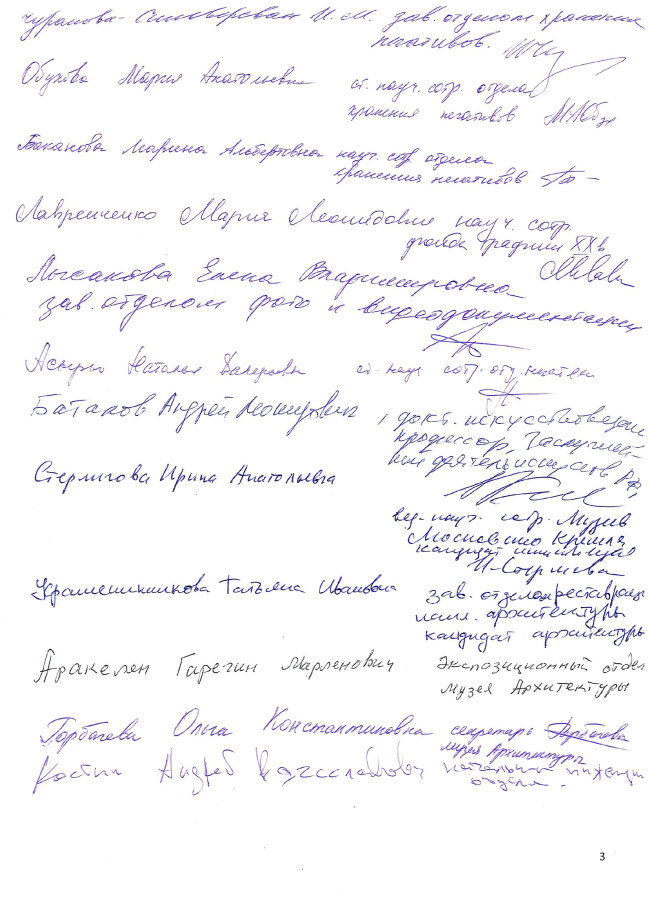 И. М. зав. отделом хранения
негативов.
Обухова Мария Анатольевна ст. науч. сотр. отдела
хранения негативов
Баканова Марина Альбертовна науч. сотр отдела
хранения негативов
Лавренченко Мария Леонидовна науч. сотр.
графики XX в
Лысакова Елена Владимировна
зав. отделом фото и видеодокументации
Наталья Валерьевна ст. науч сотр. отд. негатив
Баталов Андрей Леонидович, докт. искусствоведения
профессор, Заслужен-
ный деятель искусств РФ,
Стерлигова Ирина Анатольевна
вед. науч. сотр. Музеев
Московского Кремля
кандидат
И. Стерлигова
Крашенинникова Татьяна Ивановна зав. отделом реставрац
пам. архитектуры
кандидат архитектуры
Аракелян Гарегин Марленович Экспозиционный отдел
Музея Архитектуры
Горбачева Ольга Константиновна секретарь Горбачева
Музея Архитектуры
Костин Андрей Вячеславович инженер
отдела.
3